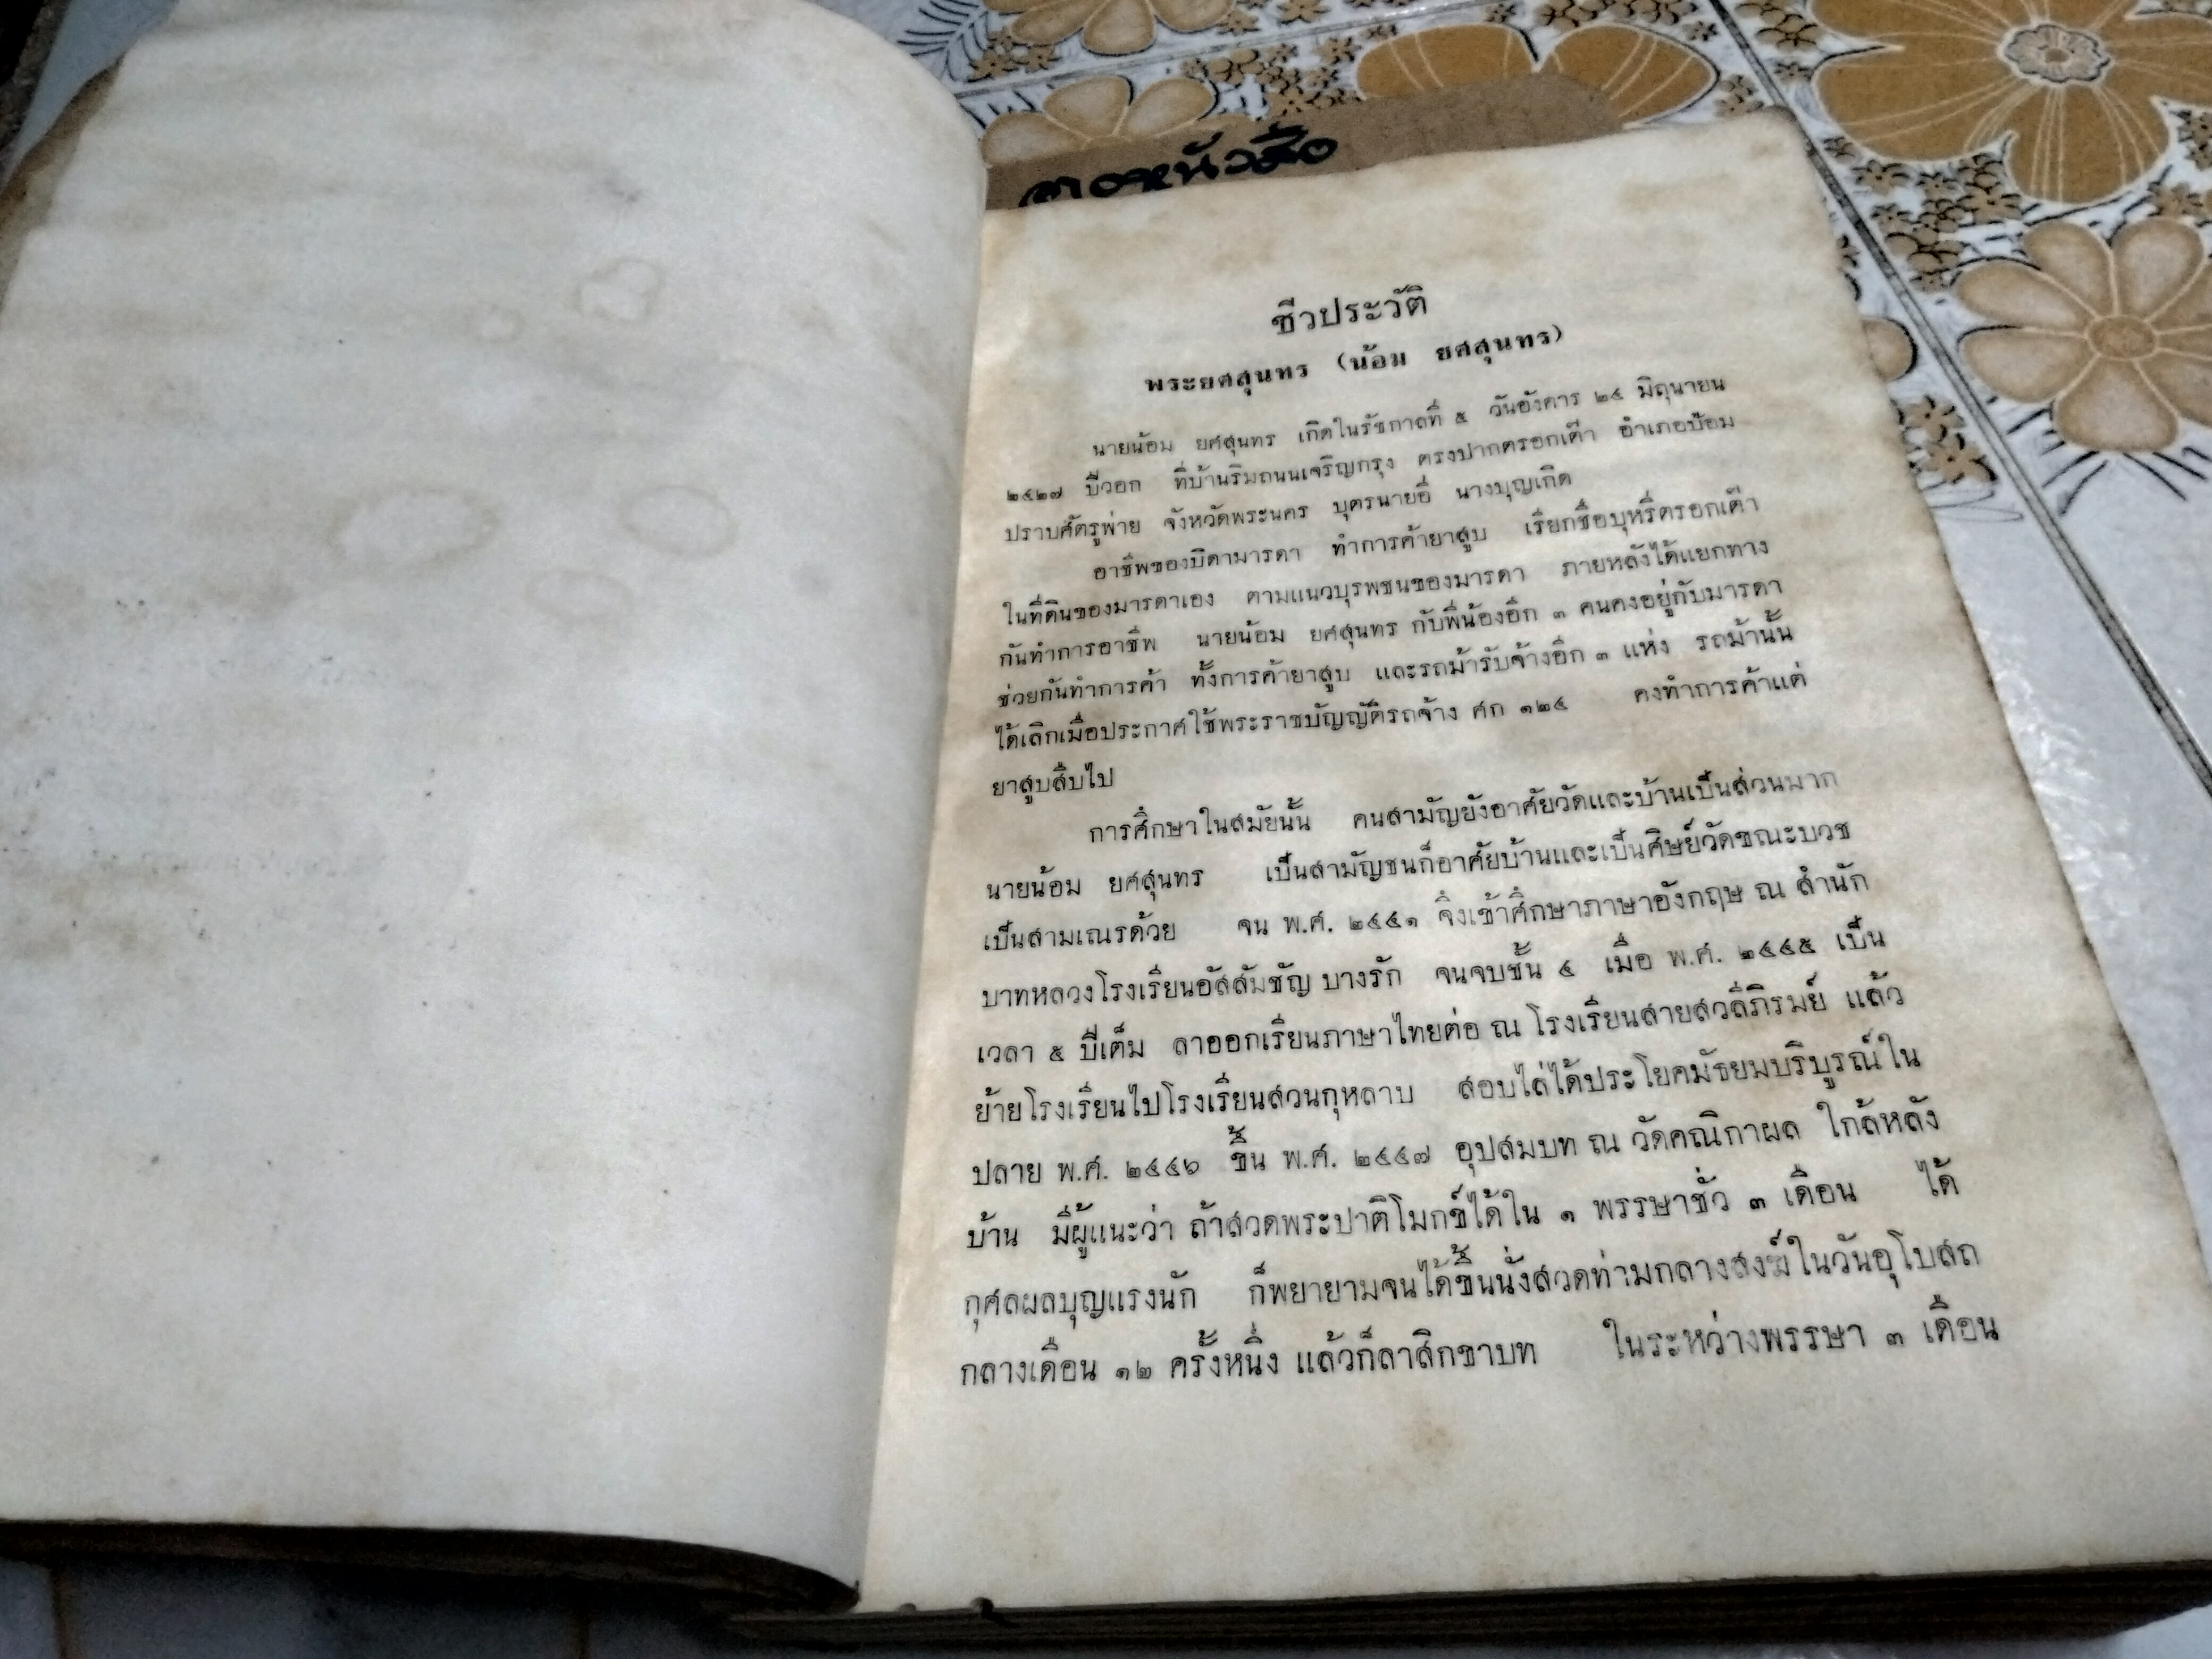 ชีวประวัติ
พระยศสุนทร (น้อม ยศสุนทร)
นายน้อม ยศสุนทร เกิดในรัชกาลที่ ๕ วันอังคาร ๒๔ มิถุนายน
๒๔๒๗ ปีวอก ที่บ้านริมถนนเจริญกรุง ตรงปากตรอกเต๊า อำเภอป้อม
ปราบศัตรูพ่าย จังหวัดพระนคร บุตรนายอี่ นางบุญเกิด
อาชีพของบิดามารดา ทำการค้ายาสูบ เรียกชื่อบุหรี่ตรอกเต๊า
ในที่ดินของมารดาเอง ตามแนวบุรพชนของมารดา ภายหลังได้แยกทาง
กันทำการอาชีพ นายน้อม ยศสุนทร กับพี่น้องอีก ๓ คนคงอยู่กับมารดา
ช่วยกันทำการค้า ทั้งการค้ายาสูบ และรถม้ารับจ้างอีก ๓ แห่ง รถม้านั้น
ได้เลิกเมื่อประกาศใช้พระราชบัญญัติรถจ้าง ศก ๑๒๔ คงทำการค้าแต่
ยาสูบสืบไป
การศึกษาในสมัยนั้น คนสามัญยังอาศัยวัดและบ้านเป็นส่วนมาก
นายน้อม ยศสุนทร เป็นสามัญชนก็อาศัยบ้านและเป็นศิษย์วัดขณะบวช
เป็นสามเณรด้วย จน พ.ศ. ๒๔๔๑ จึงเข้าศึกษาภาษาอังกฤษ ณ สำนัก
บาทหลวงโรงเรียนอัสสัมชัญ บางรัก จนจบชั้น ๔ เมื่อ พ.ศ. ๒๔๔๕ เป็น
เวลา ๕ ปีเต็ม ลาออกเรียนภาษาไทยต่อ ณ โรงเรียนสายสวลีภิรมย์ แล้ว
ย้ายโรงเรียนไปโรงเรียนสวนกุหลาบ สอบไล่ได้ประโยคมัธยมบริบูรณ์ใน
ปลาย พ.ศ. ๒๔๔๖ ขึ้น พ.ศ. ๒๔๔๗ อุปสมบท ณ วัดคณิกาผล ใกล้หลัง
บ้าน มีผู้แนะว่า ถ้าสวดพระปาติโมกข์ได้ใน ๑ พรรษาชั่ว ๓ เดือน ได้
กุศลผลบุญแรงนัก ก็พยายามจนได้ขึ้นนั่งสวดท่ามกลางสงฆ์ในวันอุโบสถ
กลางเดือน ๑๒ ครั้งหนึ่ง แล้วก็ลาสิกขาบท ในระหว่างพรรษา ๓ เดือน